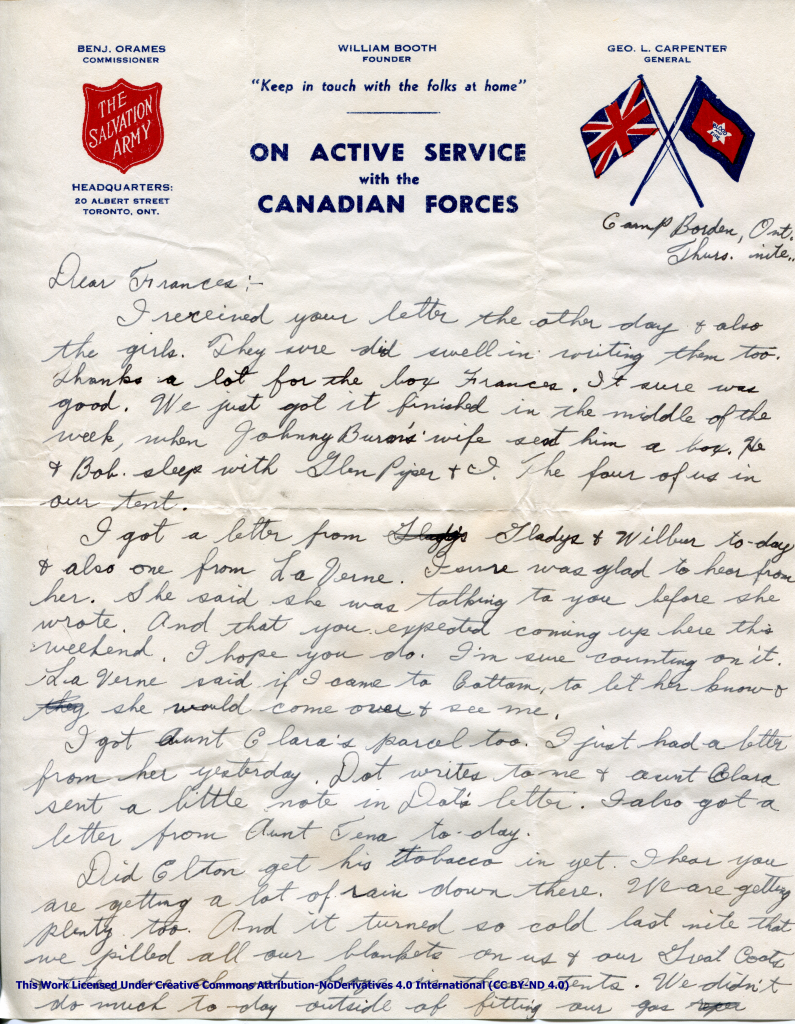 BENJ. ORAMES
COMMISSIONER
WILLIAM BOOTH
FOUNDER
GEO. L. CARPENTER
GENERAL
"Keep in touch with the folks at home"
THE
SALVATION
ARMY
ON ACTIVE SERVICE
with the
CANADIAN FORCES
HEADQUARTERS:
20 ALBERT STREET
TORONTO, ONT.
Camp Borden, Ont.
Thurs. nite.
Dear Frances:-
I received your letter the other day & also
the girls. They sure did swell in writing them too.
Thanks a lot for the box Frances. It sure was
good. We just got it finished in the middle of the
week, when Johnny Burn's wife sent him a box. He
& Bob sleep with Glen Pyper & I. The four of us in
our tent.
I got a letter from Gladys & Wilbur to-day
& also one from La Verne. I sure was glad to hear from
her. She said she was talking to you before she
wrote. And that you expected coming up here this
weekend. I hope you do. I'm sure counting on it.
La Verne said if I came to Cottam, to let her know &
they she would come over & see me.
I got Aunt Clara's parcel too. I just had a letter
from her yesterday. Dot writes to me & aunt Clara
sent a little note in Dot's letter. I also got a
letter from Aunt Tena to-day.
Did Elton get his tobacco in yet. I hear you
are getting a lot of rain down there. We are getting
plenty too. And it turned so cold last nite that
we pilled all our blankets on us & our Great Coats
This Work Licensed Under Creative Commons Attribution-NoDerivatives 4.0 International (CC BY-ND 4.0)
tents. We didn't
do much to-day outside of fitting our gas